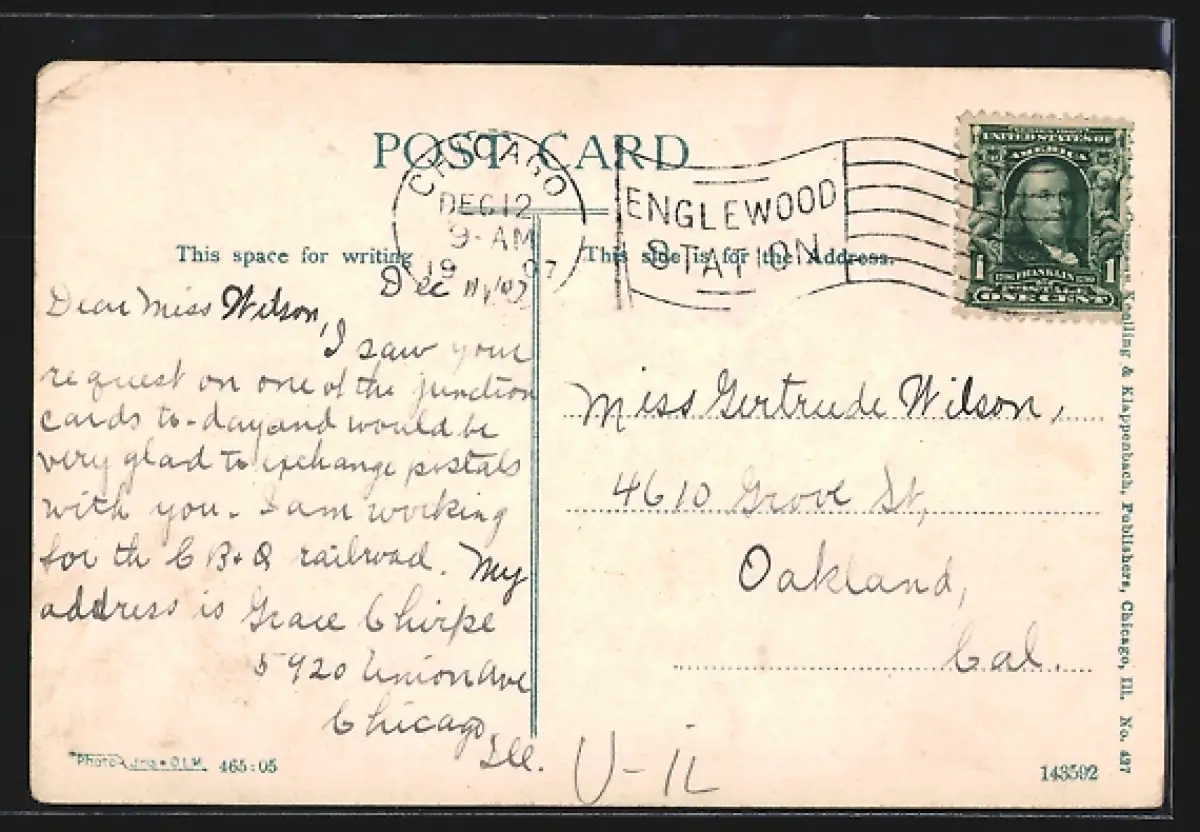 POST CARD
CHICAGO
DEC 12
9-AM
1907
ENGLEWOOD
STATION
UNITED STATES OF
AMERICA
1 FRANKLIN 1
ONE CENT
This space for writing
This side is for the Address.
Dec 11/07
Dear Miss Wilson,
I saw your
request on one of the junction
cards to-day and would be
very glad to exchange postals
with you. I am working
for th C B+Q railroad. My
address is Grace Chirpe
5920 Union Ave
Chicago,
Ill.
Miss Gertrude Wilson,
4610 Grove St,
Oakland,
Cal.
465:05
U-iL
143592
Koelling & Klappenbach, Publishers, Chicago, Ill. No. 427